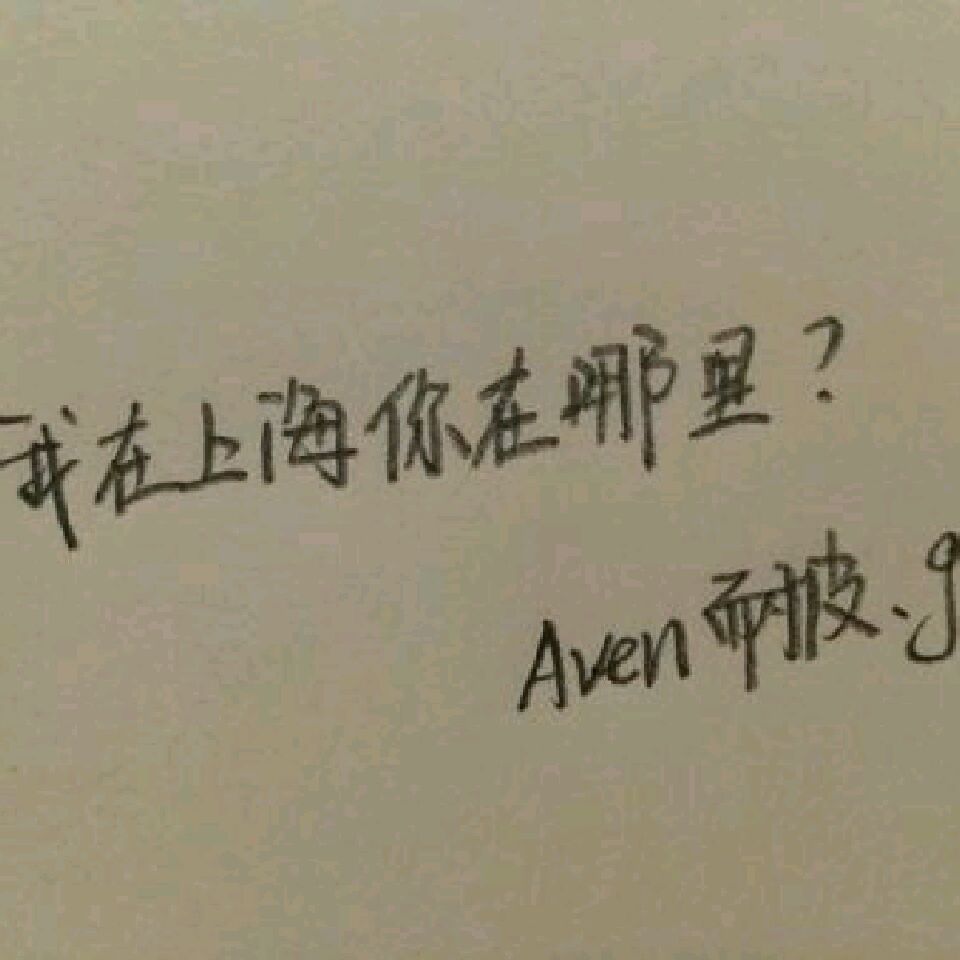 我在上海你在哪里?
Aven 耐披.g